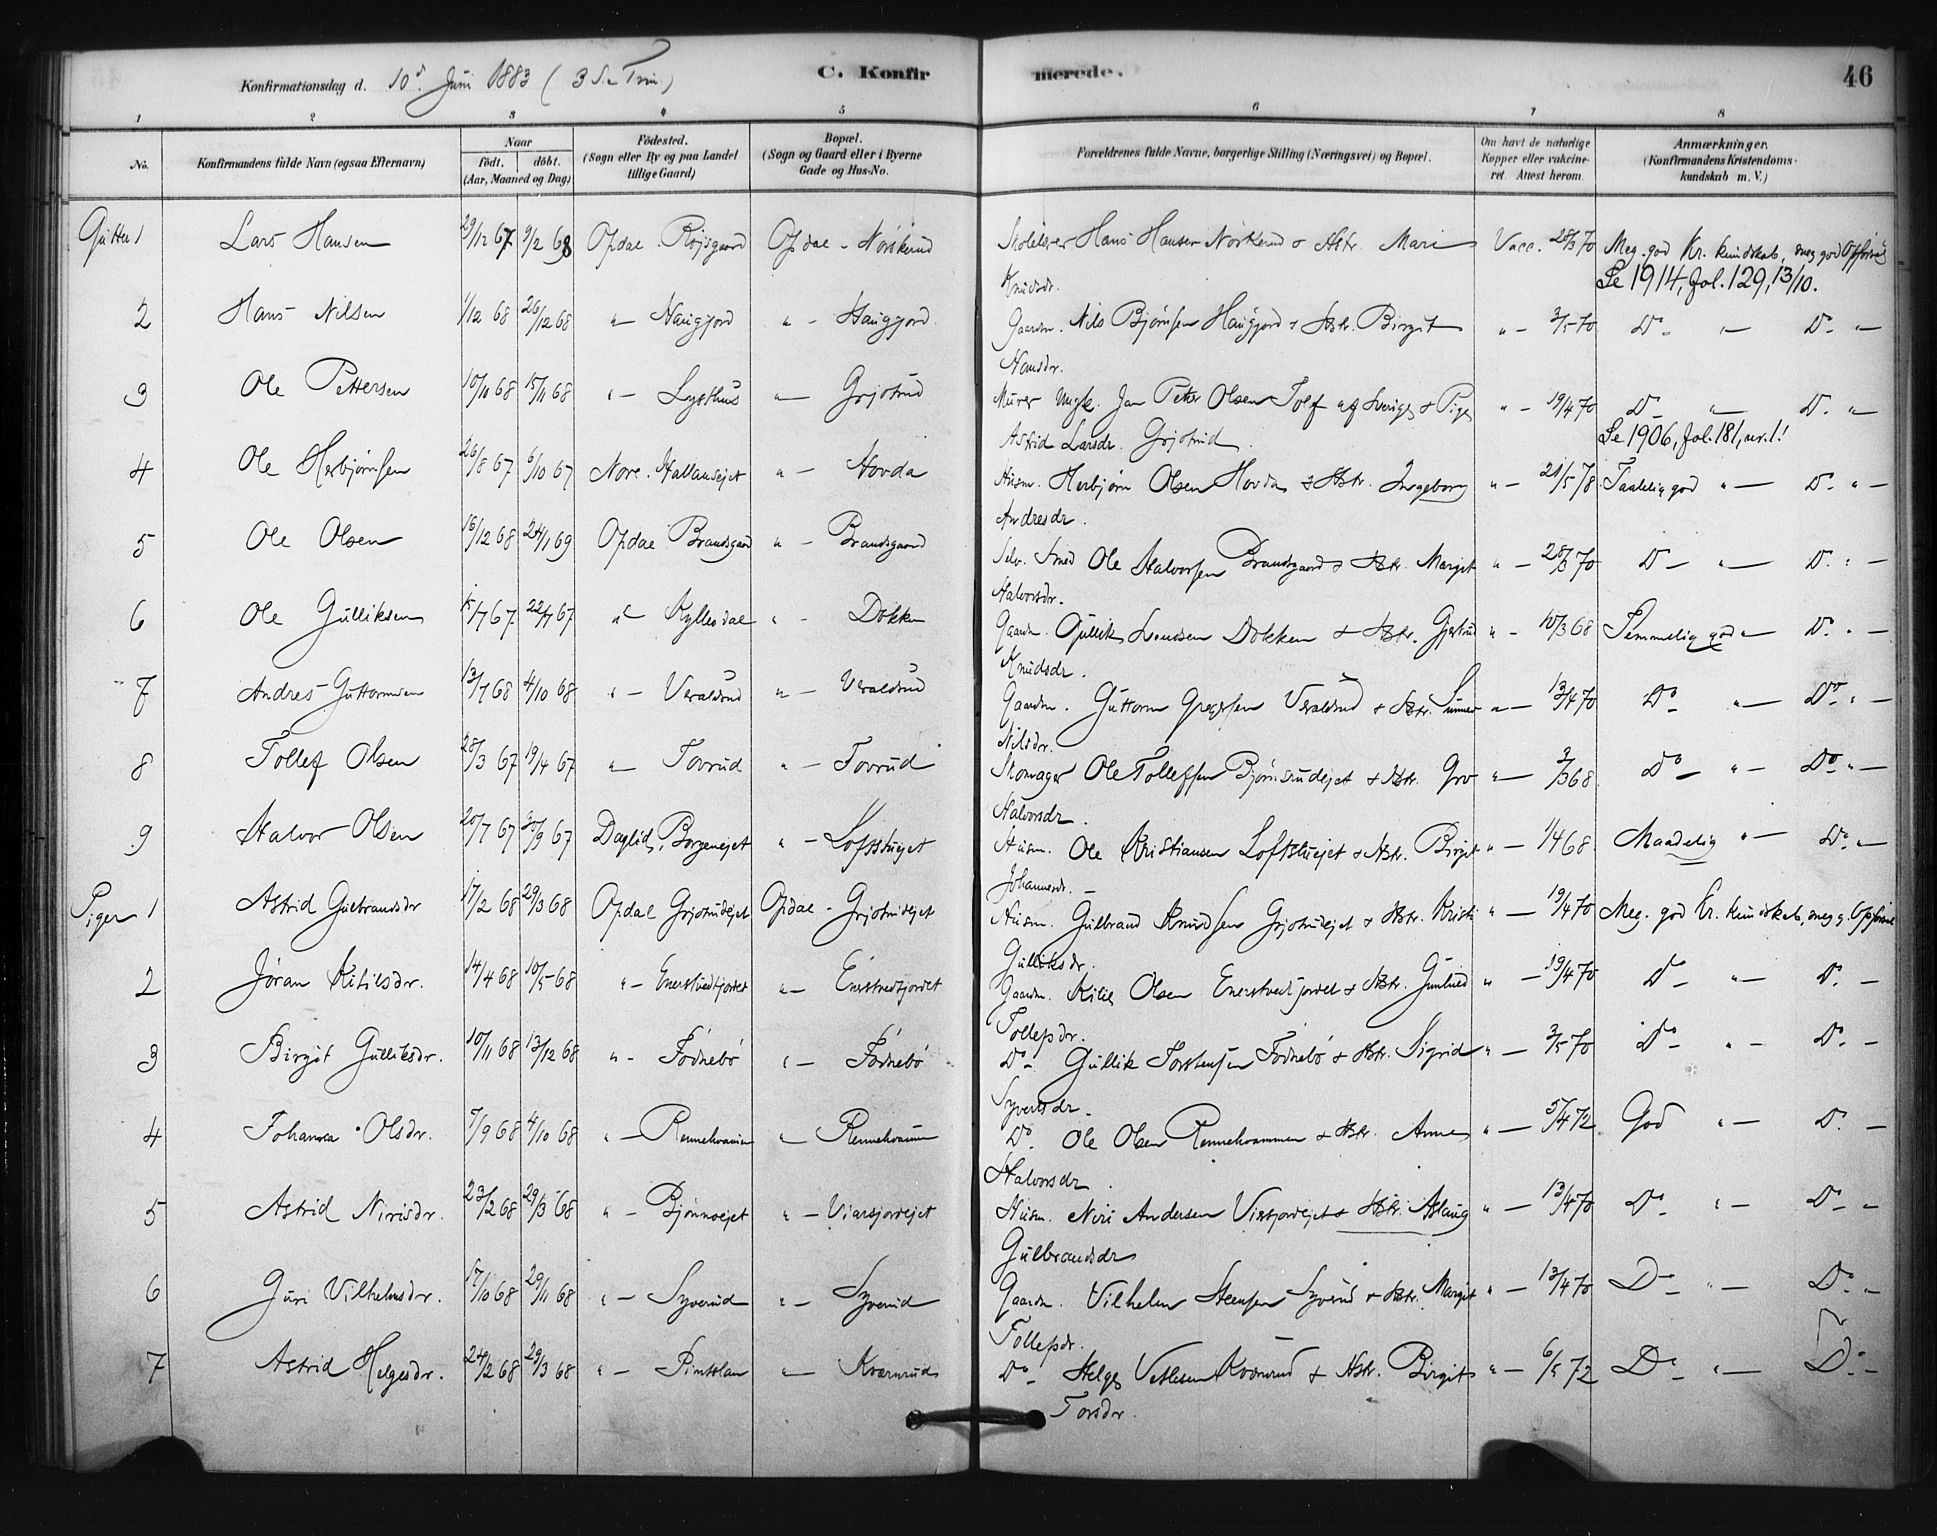 Konfirmationsdag d. 10d Juni 1883 (3 S. Trin)
C. Konfirmerede.
46
1 2 3 4 5 6 7 8
No.
Konfirmandens fulde Navn (ogsaa Efternavn)
Naar
födt. döbt.
(Aar, Maaned og Dag)
Födested.
(Sogn eller By og paa Landet
tillige Gaard)
Bopæl.
(Sogn og Gaard eller i Byerne
Gade og Hus-No.
Forældrenes fulde Navne, borgerlige Stilling (Næringsvei) og Bopæl.
Om havt de naturlige
Kopper eller vakcine-
ret. Attest herom.
Anmærkninger.
(Konfirmandens Kristendoms-
kundskab m. V.)
Gutter 1 Lars Hansen 29/12 67 9/2 68 Opdal Röjsgaard Opdal - Nörsterud Hans Hansen & Hstr. Mari Vacc. 28/3 70 Meg. god Kr. kundskab, meg god Opförsel
Knudsdr. Se 1914, fol. 129, 13/10.
2 Hans Nilsen 1/12 68 26/12 68 " - Haugjord " - Haugjord Gaardm. Nils Björnsen Haugjord & Hstr. Birgit " - 3/5 70 Do " - Do " -
3 Ole Pettersen 10/11 68 15/11 68 " - Lysthus " - Grjotrud Murer Ungk. Jan Peter Olsen Tolf af Sverige & Pige " - 19/4 70 Do " - Do " -
Astrid Larsdr. Grjotrud. Se 1906, fol. 181, nr. 1!
4 Ole Herbjörnsen 26/8 67 6/10 67 Nore. " - Hovda Husm. Herbjörn Olsen Hovda & Hstr. Ingeborg " - 21/5 78 Taalelig god " - Do " -
Andresdr.
5 Ole Olsen 16/12 68 24/1 69 Opdal Brandsgaard " - Brandsgaard Selv. Smed Ole Halvorsen Brandsgaard & Hstr. Margit " - 28/3 70 Do " - Do " -
Halvorsdr.
6 Ole Gulliksen 15/7 67 22/7 67 " - Kyllesdal " - Dokken Gaardm. Gullik Svendsen Dokken & Hstr. Gjertrud " - 10/3 68 Temmelig god " - Do " -
Knudsdr.
7 Andres Guttormsen 13/7 68 4/10 68 " - Veraldrud " - Veraldrud Gaardm. Guttorm Gregersen Veraldrud & Hstr. " - 13/4 70 Do " - Do " -
Nilsdr.
8 Tollef Olsen 28/3 67 19/4 67 " - Tovrud " - Tovrud Skomager Ole Tollefsen Björnsrudejet & Hstr. Gro " - 2/3 68 Do " - Do " -
Halvorsdr.
9 Halvor Olsen 20/7 67 30/9 67 Daglid, Borgenejet " - Loftstuejet Husm. Ole Kristiansen Loftstuejet & Hstr. Birgit " - 1/4 68 Maadelig " - Do " -
Johannesdr. -
Piger 1 Astrid Gulbrandsdr 17/2 68 29/3 68 Opdal Grjotrudejet Opdal - Grjotrudejet Husm. Gulbrand Knudsen Grjotrudejet & Hstr. Kristi " - 19/4 70 Meg. god Kr. kundskab, meg g. Opförsel
Gulliksdr.
2 Jöran Kitilsdr. 14/4 68 10/5 68 " - Enerstvedtjordet " - Enerstvedtjordet Gaardm. Kitil Olsen Enerstvedtjordet & Hstr. Gunhild " - 19/4 70 Do " - Do -
Tollefsdr.
3 Birgit Gulliksdr. 10/11 68 13/12 68 " - Födnebö " - Födnebö Do Gullik Torstensen Födnebö & Hstr. Sigrid " - 3/5 70 Do " - Do -
Syvertsdr.
4 Johanna Olsdr. 7/9 68 4/10 68 " - Rennehvammen " - Rennehvammen Do. Ole Olsen Rennehvammen & Hstr. Anne " - 5/4 72 God " - Do -
Halvorsdr.
5 Astrid Nirisdr. 23/2 68 29/3 68 " - Björnnoejet " - Viarsjordejet Husm. Niri Andersen & Hstr. Aslaug " - 13/4 70 Do " - Do -
Gulbrandsdr
6 Guri Vilhelmsdr. 17/10 68 29/11 68 " - Syverud " - Syverud Gaardm. Vilhelm Steensen Syverud & Hstr. Margit " - 13/4 70 Do " - Do -
Tollefsdr.
7 Astrid Helgesdr. 24/2 68 29/3 68 " - " - Kværnrud Do Helge Vetlesen Kværnrud & Hstr. Birgit " - 6/5 72 Do " - Do -
Torsdr.